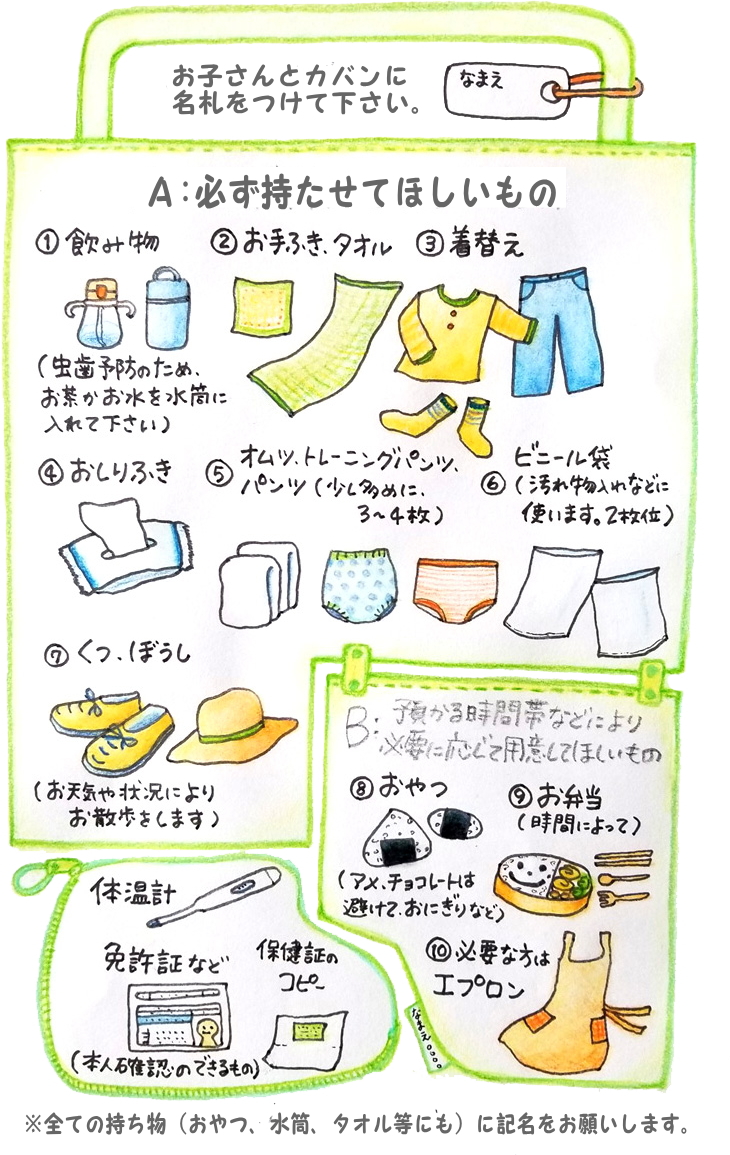 お子さんとカバンに
名札をつけて下さい。
なまえ
A:必ず持たせてほしいもの
①飲み物
(虫歯予防のため、
お茶かお水を水筒に
入れて下さい)
②お手ふき、タオル
③着替え
④おしりふき
⑤オムツ、トレーニングパンツ、
パンツ(少し多めに、
3~4枚)
⑥ビニール袋
(汚れ物入れなどに
使います。2枚位)
⑦くつ、ぼうし
(お天気や状況により
お散歩をします)
B:預かる時間帯などにより
必要に応じて用意してほしいもの
⑧おやつ
(アメ、チョコレートは
避けて、おにぎりなど)
⑨お弁当
(時間によって)
⑩必要な方は
エプロン
なまえ。。。。
体温計
免許証など
(本人確認のできるもの)
保健証の
コピー
※全ての持ち物(おやつ、水筒、タオル等にも)に記名をお願いします。